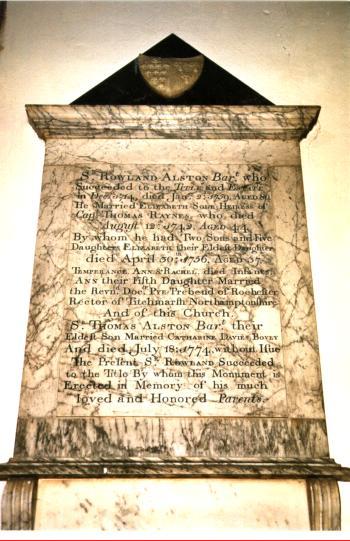 Sr. ROWLAND ALSTON Bart. who
Succeeded to the Title and Estate
in Decr. 1714, died, Jany. 2: 1759, AGED 80
He Married ELIZABETH Sole Heiress of
Capt. THOMAS RAYNES, who, died
August 12: 1742, AGED 44.
By whom he had, Two Sons and Five
Daughters, ELIZABETH their Eldest Daughter
died April 30: 1756, AGED 37.
TEMPERANCE, ANN & RACHEL, died Infants,
ANN their Fifth Daughter Married
the Revd. Doc. PYE Prebend of Rochester
Rector of Titchmarsh Northamptonshire
And of this Church.
Sr. THOMAS ALSTON Bart. their
Eldest Son Married CATHARINE DAVIES BOVEY
And died, July 18: 1774, without Issue
The Present Sr. ROWLAND Succeeded
to the Title By whom this Monument is
Erected in Memory of his much
loved and Honored Parents.